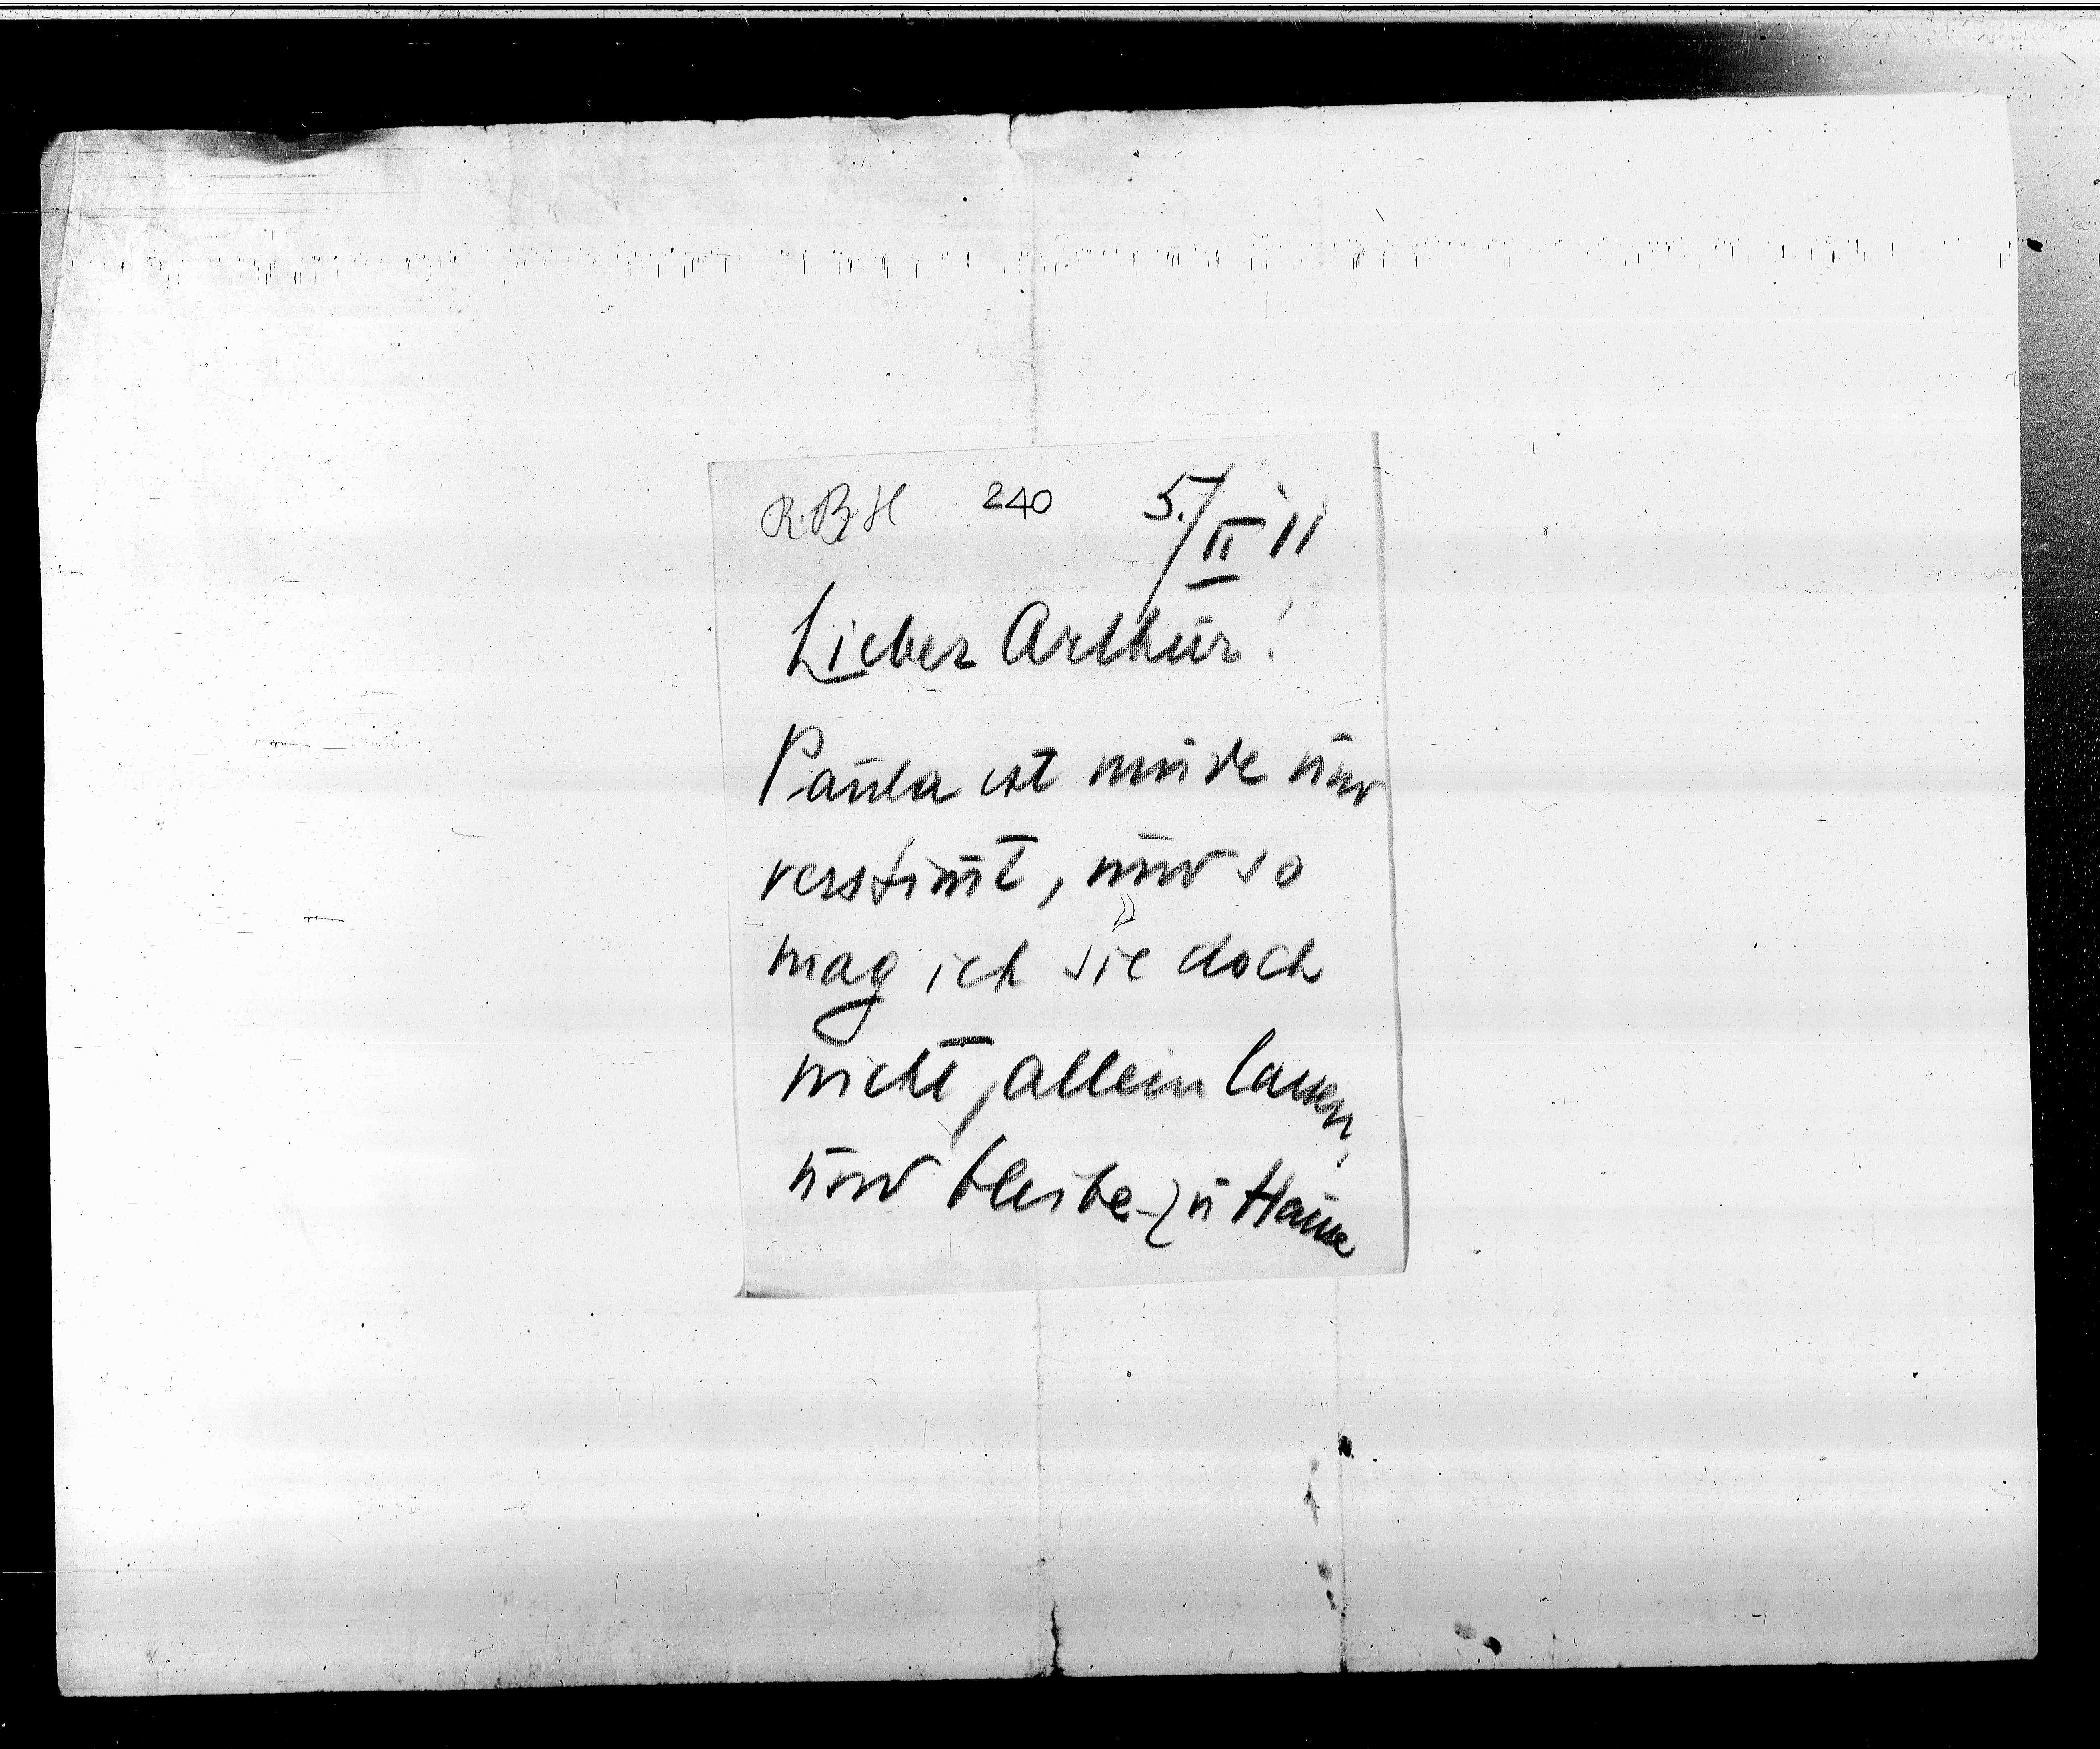 R. B H 240 5./II 11
Lieber Arthur!
Paula ist müde und
verstim̄t, und so
mag ich sie doch
nicht allein lassen,
und bleibe zu Hause